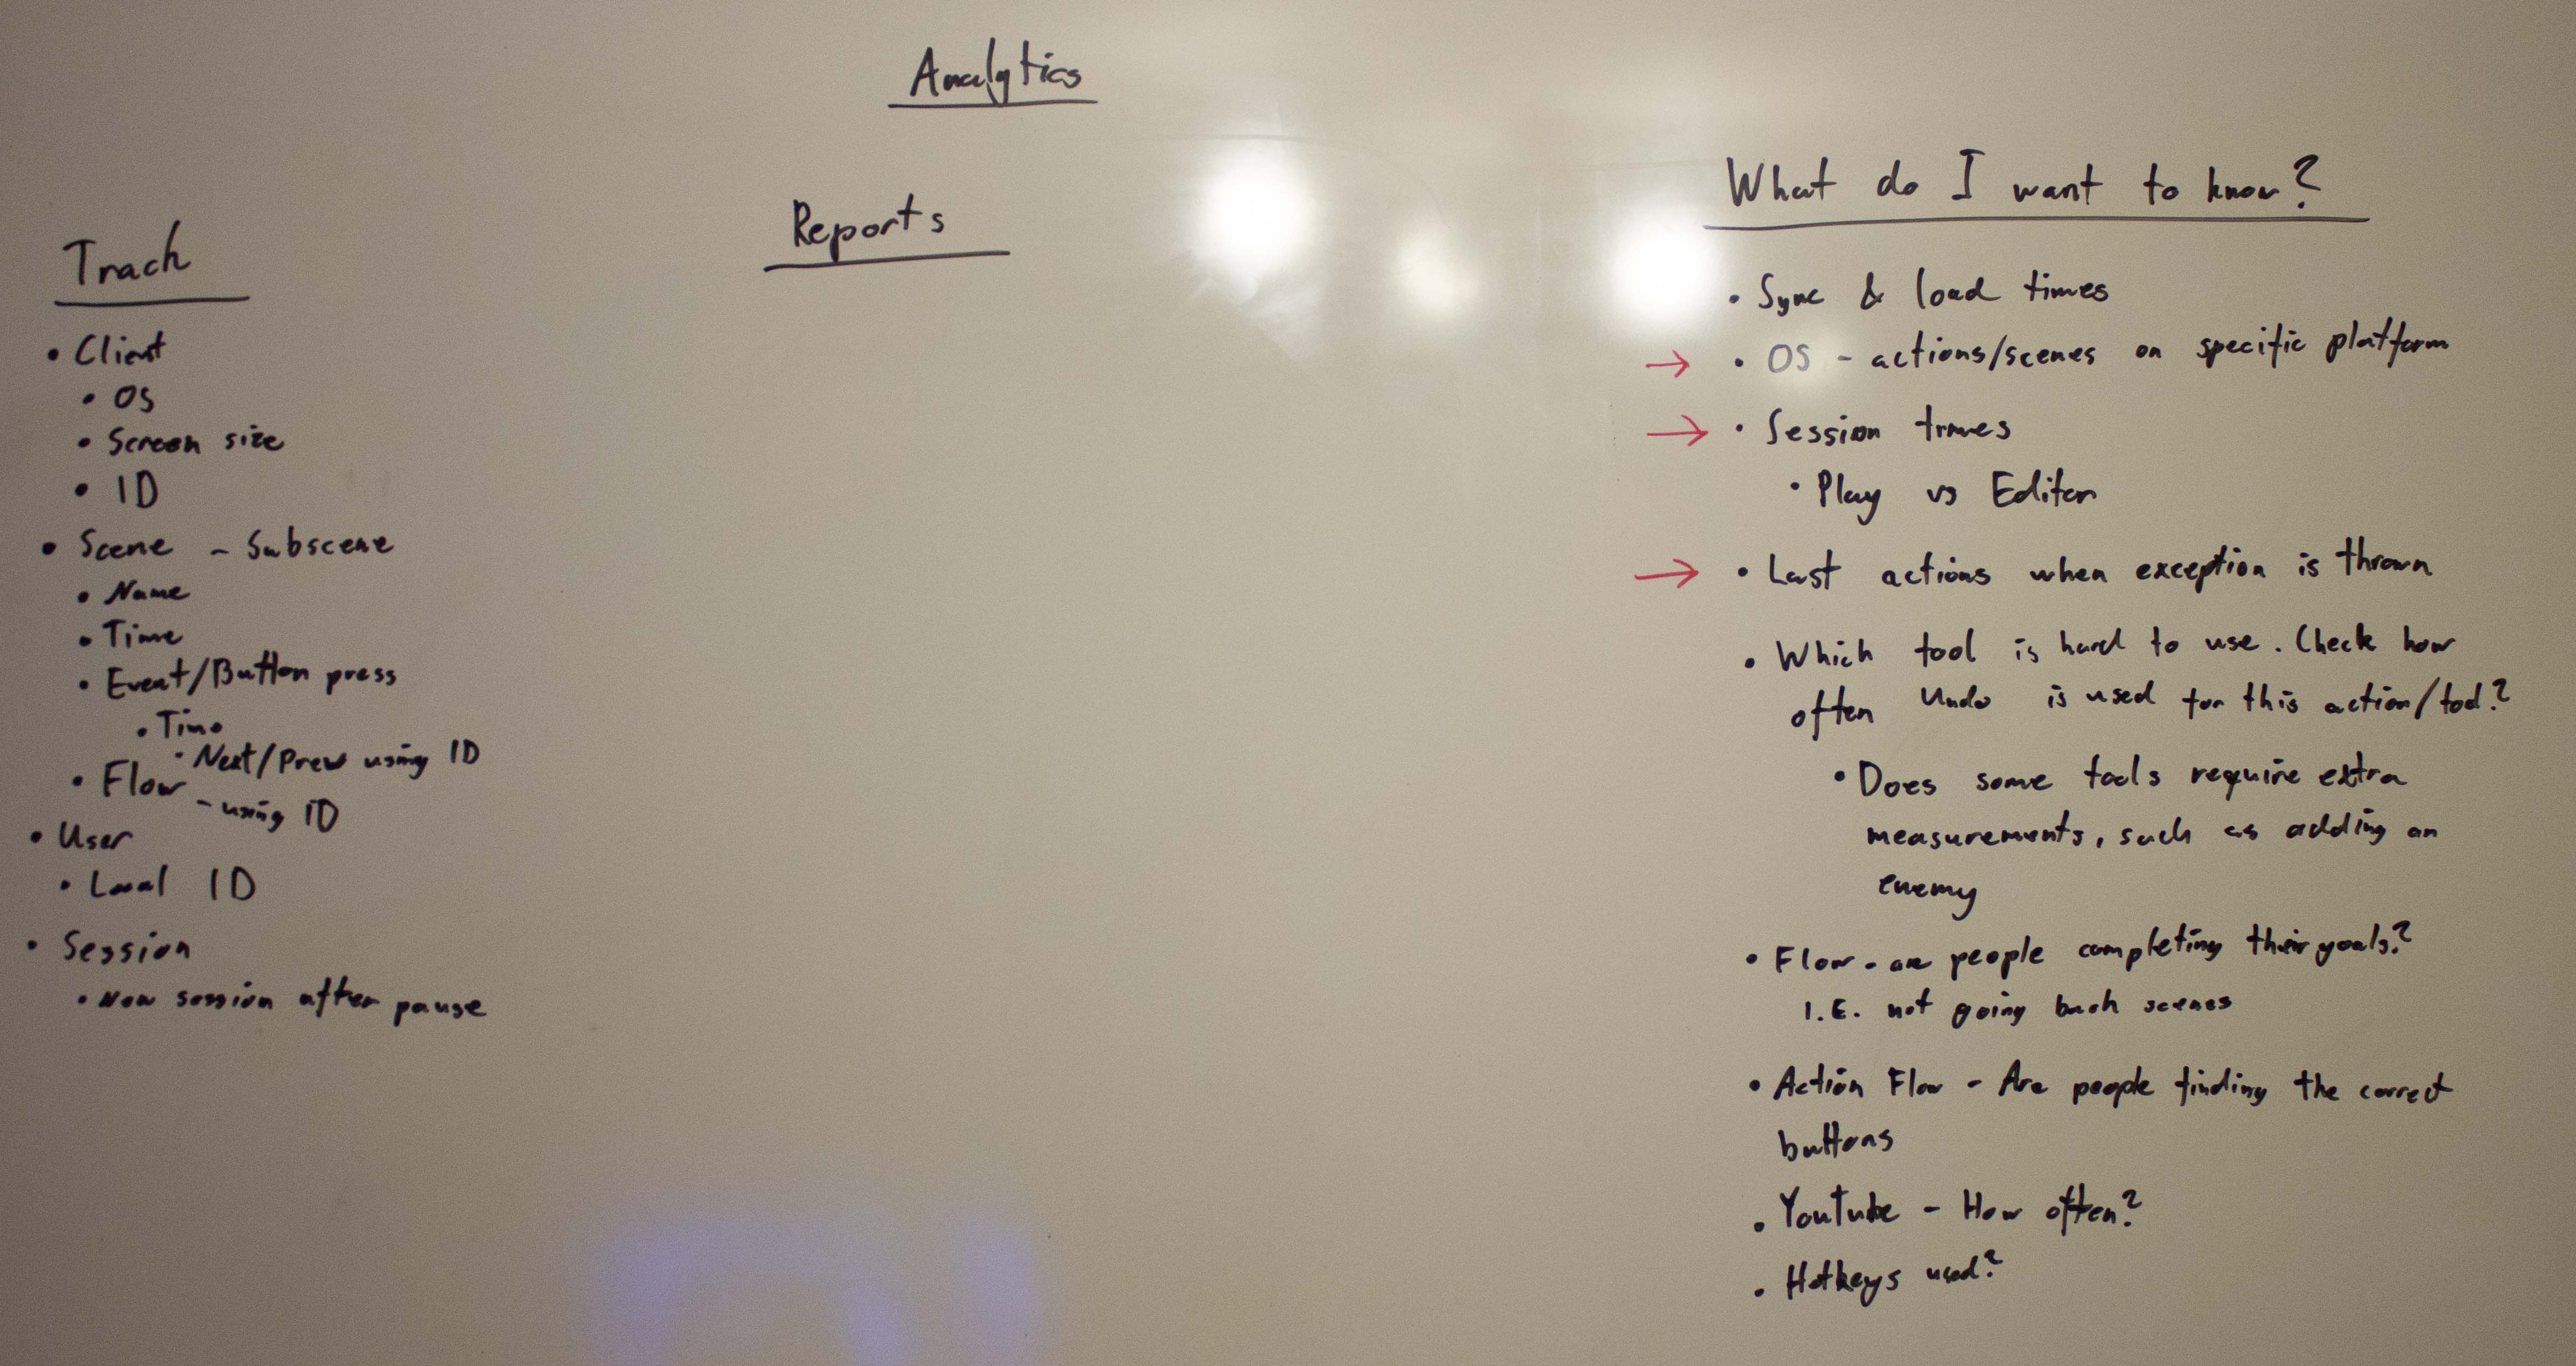 Analytics
Track
• Client
• OS
• Screen size
• ID
• Scene - Subscene
• Name
• Time
• Event/Button press
• Time
• Next/Prev using ID
• Flow
- using ID
• User
• Local ID
• Session
• New session after pause
Reports
What do I want to know?
• Sync & load times
→ • OS - actions/scenes on specific platform
→ • Session times
• Play vs Editor
→ • Last actions when exception is thrown
• Which tool is hard to use. Check how
often Undo is used for this action/tool?
• Does some tools require extra
measurements, such as adding an
enemy
• Flow - are people completing their goals?
I.E. not going back scenes
• Action Flow - Are people finding the correct
buttons
• Youtube - How often?
• Hotkeys used?